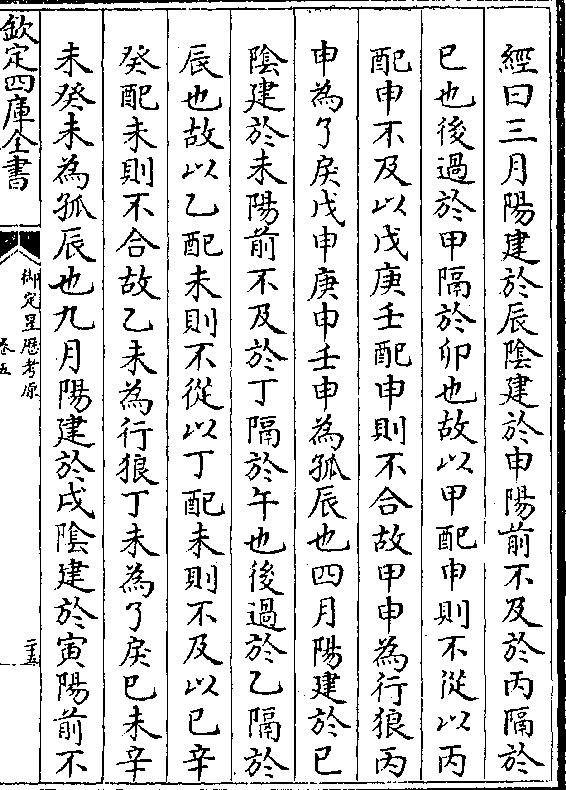 經曰三月陽建於辰陰建於申陽前不及於丙隔於
巳也後過於甲隔於卯也故以甲配申則不從以丙
配申不及以戊庚壬配申則不合故甲申為行狼丙
申為了戾戊申庚申壬申為孤辰也四月陽建於巳
陰建於未陽前不及於丁隔於午也後過於乙隔於
辰也故以乙配未則不從以丁配未則不及以己辛
癸配未則不合故乙未為行狼丁未為了戾己未辛
未癸未為孤辰也九月陽建於戌陰建於寅陽前不
欽定四庫全書
御定星歷考原
卷五
二十五